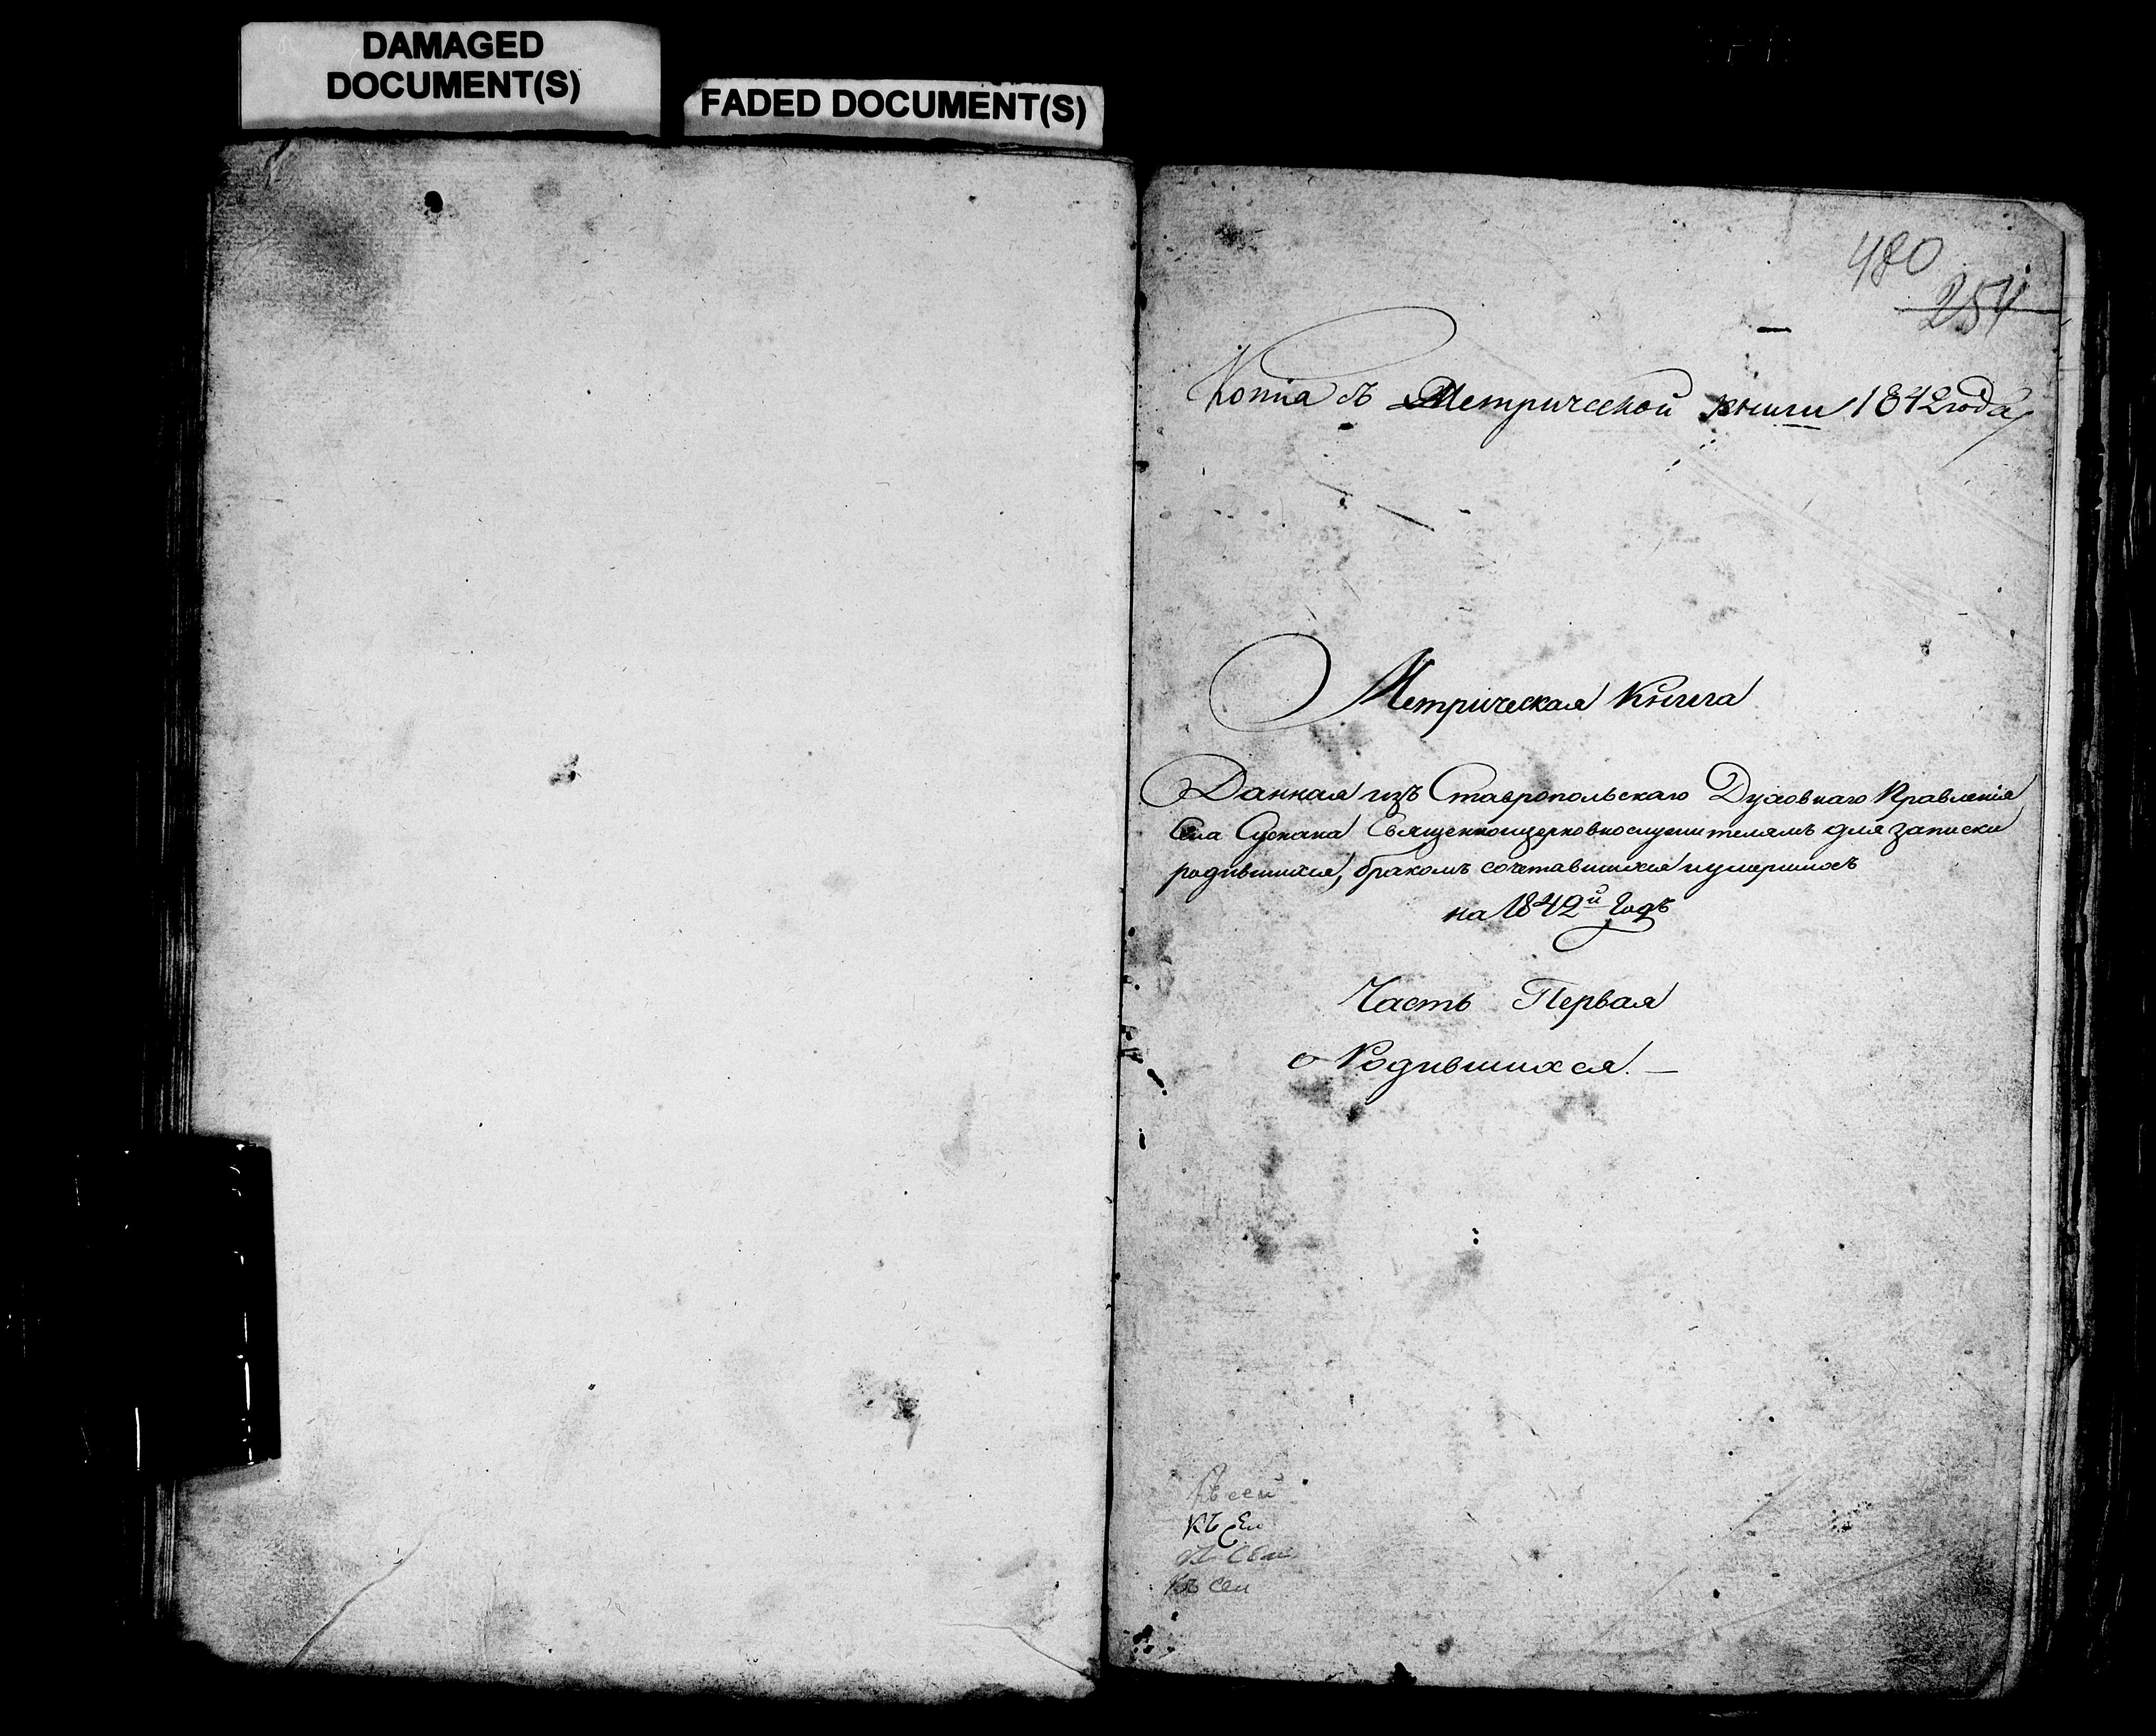 DAMAGED
DOCUMENT(S)
FADED DOCUMENT(S)
480
254
Копiя съ Метрической книги 1842 года
Метрическая Книга
Данная изъ Ставропольскаго Духовнаго Правленiя
Села Сускана Священноцерковнослужителямъ для записки
родившихся, бракомъ сочетавшихся и умершихъ
на 1842й Годъ
Часть Первая
о Родившихся. —
Къ сей
Къ Се
Къ сей